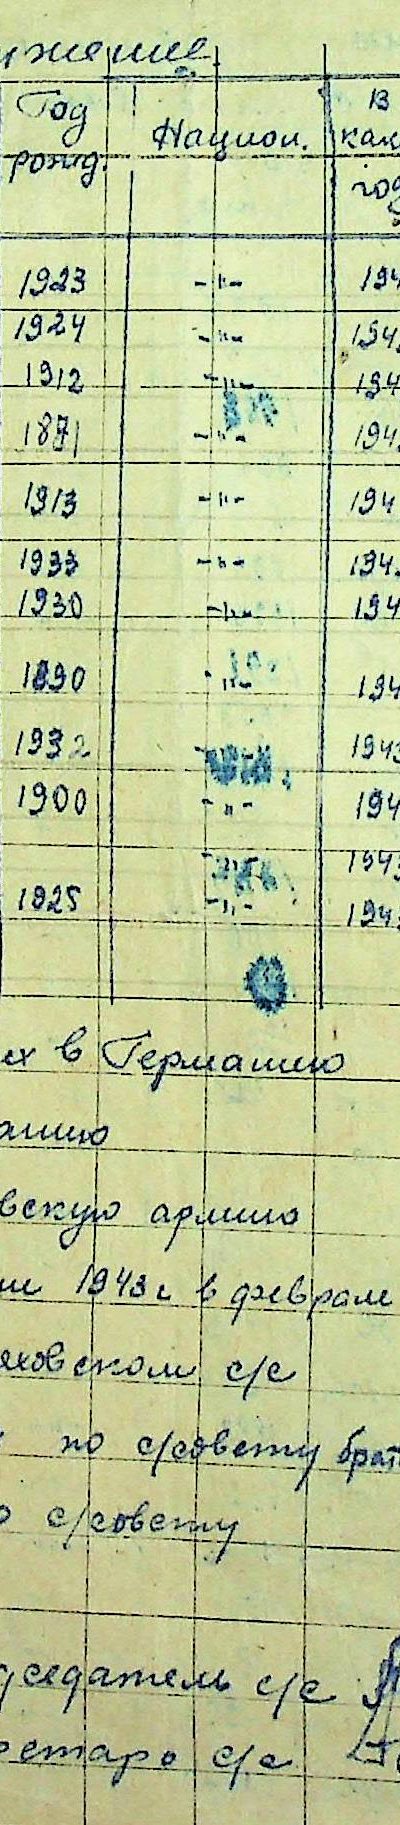 Год | Национ. | В
рожд. | год
1923 -"- 194
1924 -"- 194
1912 -"- 194
1871 -"- 194
1913 -"- 194
1933 -"- 194
1930 -"- 194
1890 -"- 194
1932 -"- 1943
1900 -"- 194
-"- 1943
1925 -"- 194
ех в Германию
анию
вскую армию
1943 г в феврале
яховском с/с
по с/совету брат
о с/совету
дседатель с/с
ретарь с/с